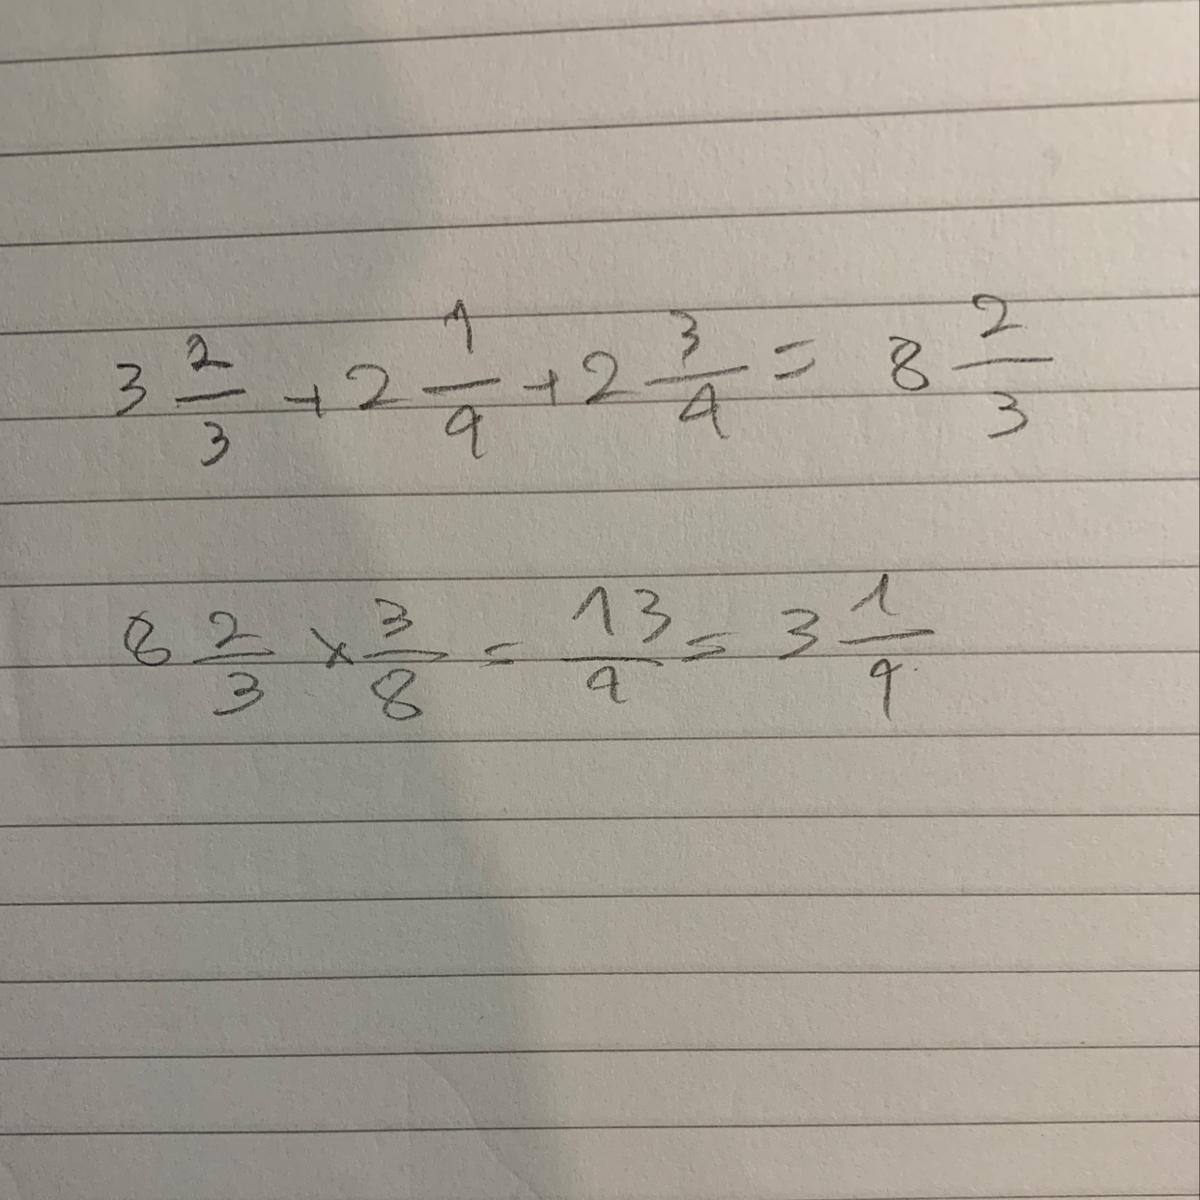 3 2/3 + 2 1/4 + 2 3/4 = 8 2/3
8 2/3 × 3/8 = 13/4 = 3 1/4